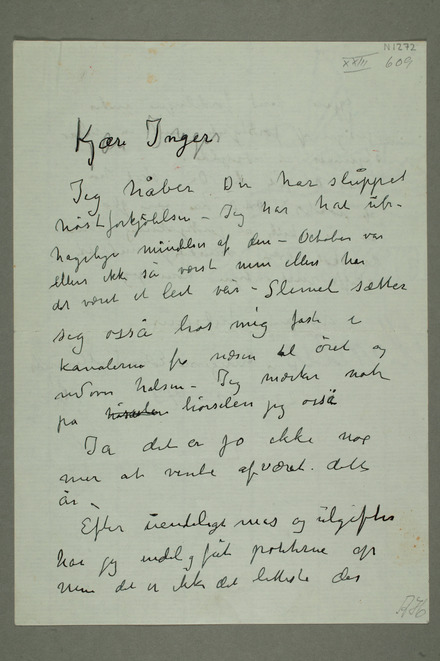 N1272
XXIII 609
Kjære Inger
Jeg håber Du har sluppet
høstforkjølelsen – Jeg har hat ube-
hagelige af den – October var
ellers ikke så værst men ellers har
det været et leit vær – Slimet sætter
sig også hos mig fast i
kanalerne fra næsen til øret og
nedover halsen – Jeg mærker nok
på hørselen jeg også
Ja det er jo ikke nog
mer at vente af været dette
år –
Efter uendeligt mas og utgifter
har jeg endelig fåt potetene op
men det er ikke det letteste